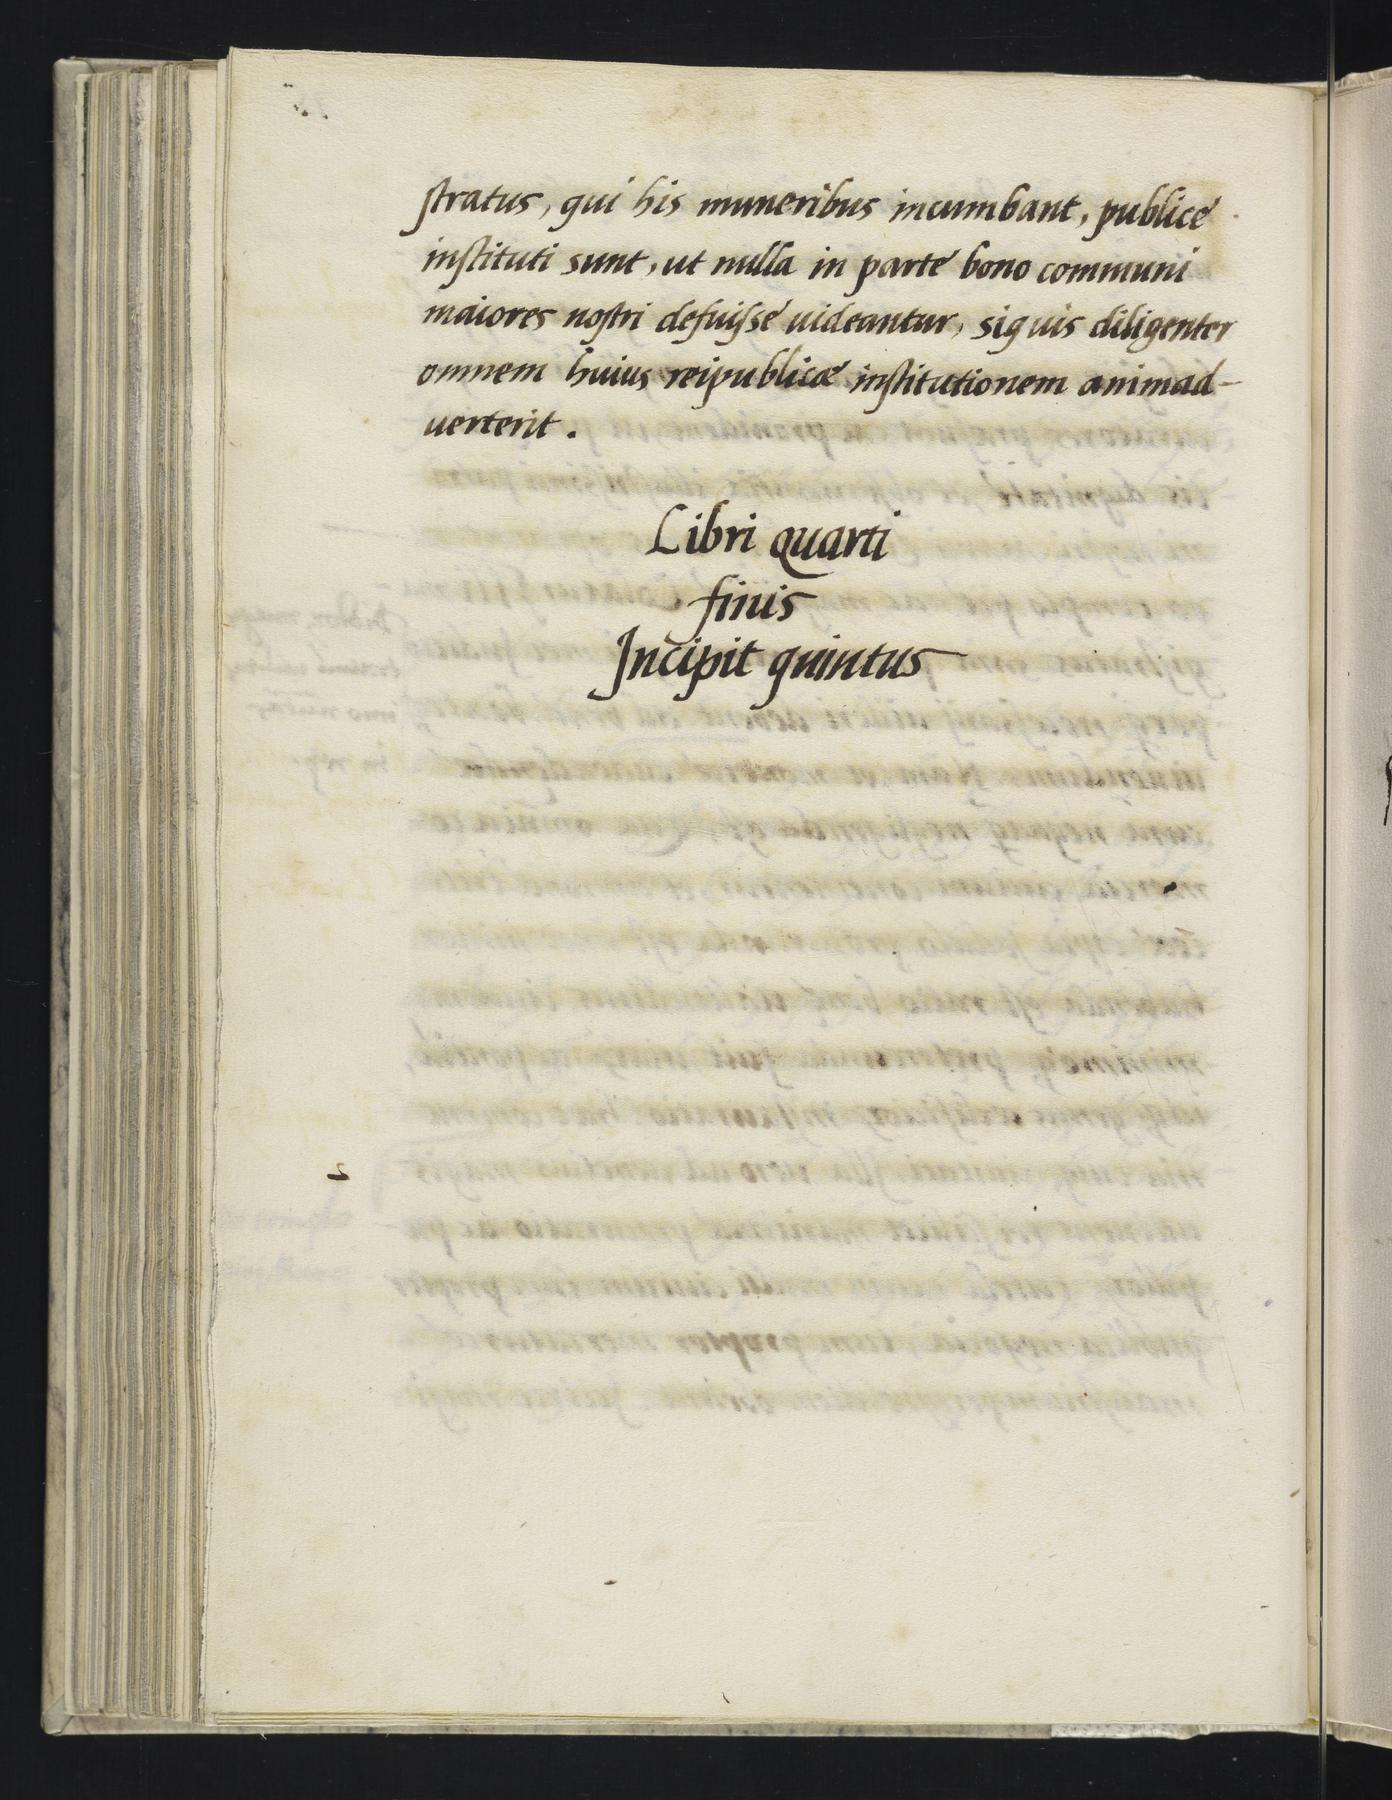 stratus, qui his muneribus incumbant, publice
instituti sunt, ut nulla in parte bono communi
maiores nostri defuisse uideantur, siquis diligenter
omnem huius reipublicæ institutionem animad-
uerterit.
Libri quarti
finis
Incipit quintus